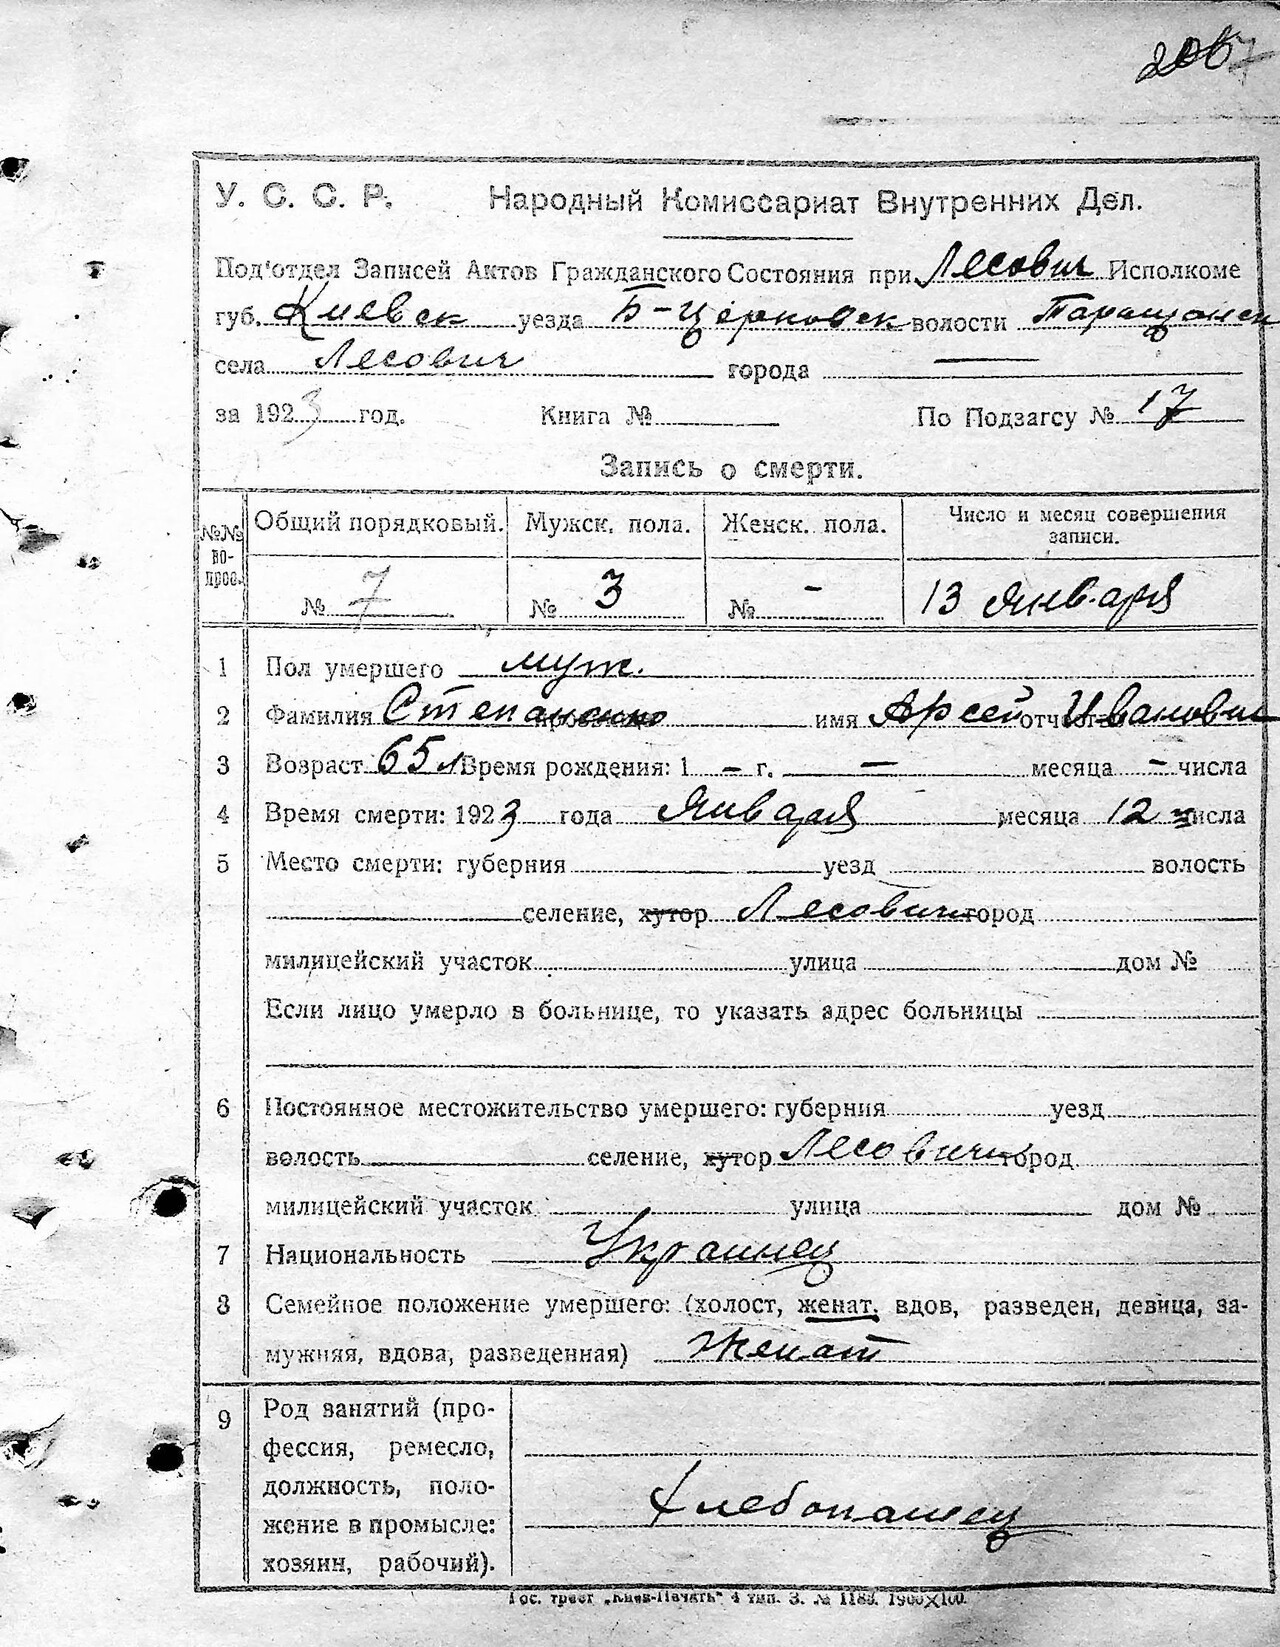 У. С. С. Р. Народный Комиссариат Внутренних Дел.
Под'отдел Записей Актов Гражданского Состояния при Лесович Исполкоме
губ. Киевск уезда Б-Церковск волости Таращанск
села Лесович города —
за 1923 год. Книга № По Подзагсу № 17
Запись о смерти.
№№ вопрос. Общий порядковый. Мужск. пола. Женск. пола. Число и месяц совершения записи.
№ 7 № 3 № - 13 Января
1 Пол умершего муж.
2 Фамилия Степаненко имя Арсей отчество Иванович
3 Возраст 65 л Время рождения: 1 - г. — месяца - числа
4 Время смерти: 1923 года Января месяца 12 числа
5 Место смерти: губерния уезд волость
селение, хутор Лесовичи город
милицейский участок улица дом №
Если лицо умерло в больнице, то указать адрес больницы
6 Постоянное местожительство умершего: губерния уезд
волость селение, хутор Лесовичи город
милицейский участок улица дом №
7 Национальность Украинец
8 Семейное положение умершего: (холост, женат, вдов, разведен, девица, за-
мужняя, вдова, разведенная) Женат
9 Род занятий (про-
фессия, ремесло,
должность, поло-
жение в промысле:
хозяин, рабочий).
Хлебопашец
Гос. трест „Киев-Печать“ 4 тип. З. № 1183. 1900×100.